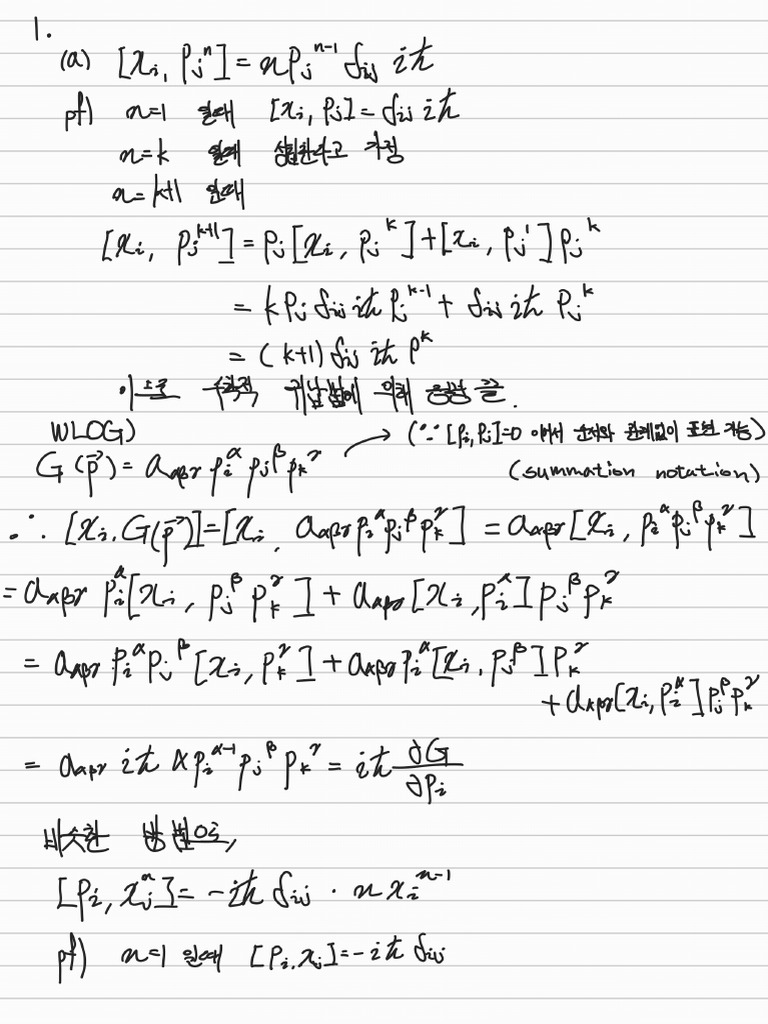 1.
(a) [xᵢ, pⱼⁿ] = n pⱼⁿ⁻¹ δᵢⱼ iħ
pf) n=1 일때 [xᵢ, pⱼ] = δᵢⱼ iħ
n=k 일때 성립한다고 가정
n=k+1 일때
[xᵢ, pⱼᵏ⁺¹] = pⱼ[xᵢ, pⱼᵏ] + [xᵢ, pⱼ¹]pⱼᵏ
= k pⱼ δᵢⱼ iħ pⱼᵏ⁻¹ + δᵢⱼ iħ pⱼᵏ
= (k+1) δᵢⱼ iħ pᵏ
이므로 수학적 귀납법에 의해 증명 끝.
WLOG)
G(p⃗) = a_{αβγ} pᵢ^α pⱼ^β pₖ^γ → (∵ [pᵢ, pⱼ]=0 이어서 순서와 관계없이 표현 가능)
(summation notation)
∴ [xᵢ, G(p⃗)] = [xᵢ, a_{αβγ} pᵢ^α pⱼ^β pₖ^γ] = a_{αβγ}[xᵢ, pᵢ^α pⱼ^β pₖ^γ]
= a_{αβγ} pᵢ^α[xᵢ, pⱼ^β pₖ^γ] + a_{αβγ}[xᵢ, pᵢ^α]pⱼ^β pₖ^γ
= a_{αβγ} pᵢ^α pⱼ^β[xᵢ, pₖ^γ] + a_{αβγ} pᵢ^α[xᵢ, pⱼ^β]pₖ^γ
+ a_{αβγ}[xᵢ, pᵢ^α]pⱼ^β pₖ^γ
= a_{αβγ} iħ α pᵢ^{α-1} pⱼ^β pₖ^γ = iħ ∂G/∂pᵢ
비슷한 방법으로,
[pᵢ, xⱼⁿ] = -iħ δᵢⱼ · n xᵢⁿ⁻¹
pf) n=1 일때 [pᵢ, xⱼ] = -iħ δᵢⱼ